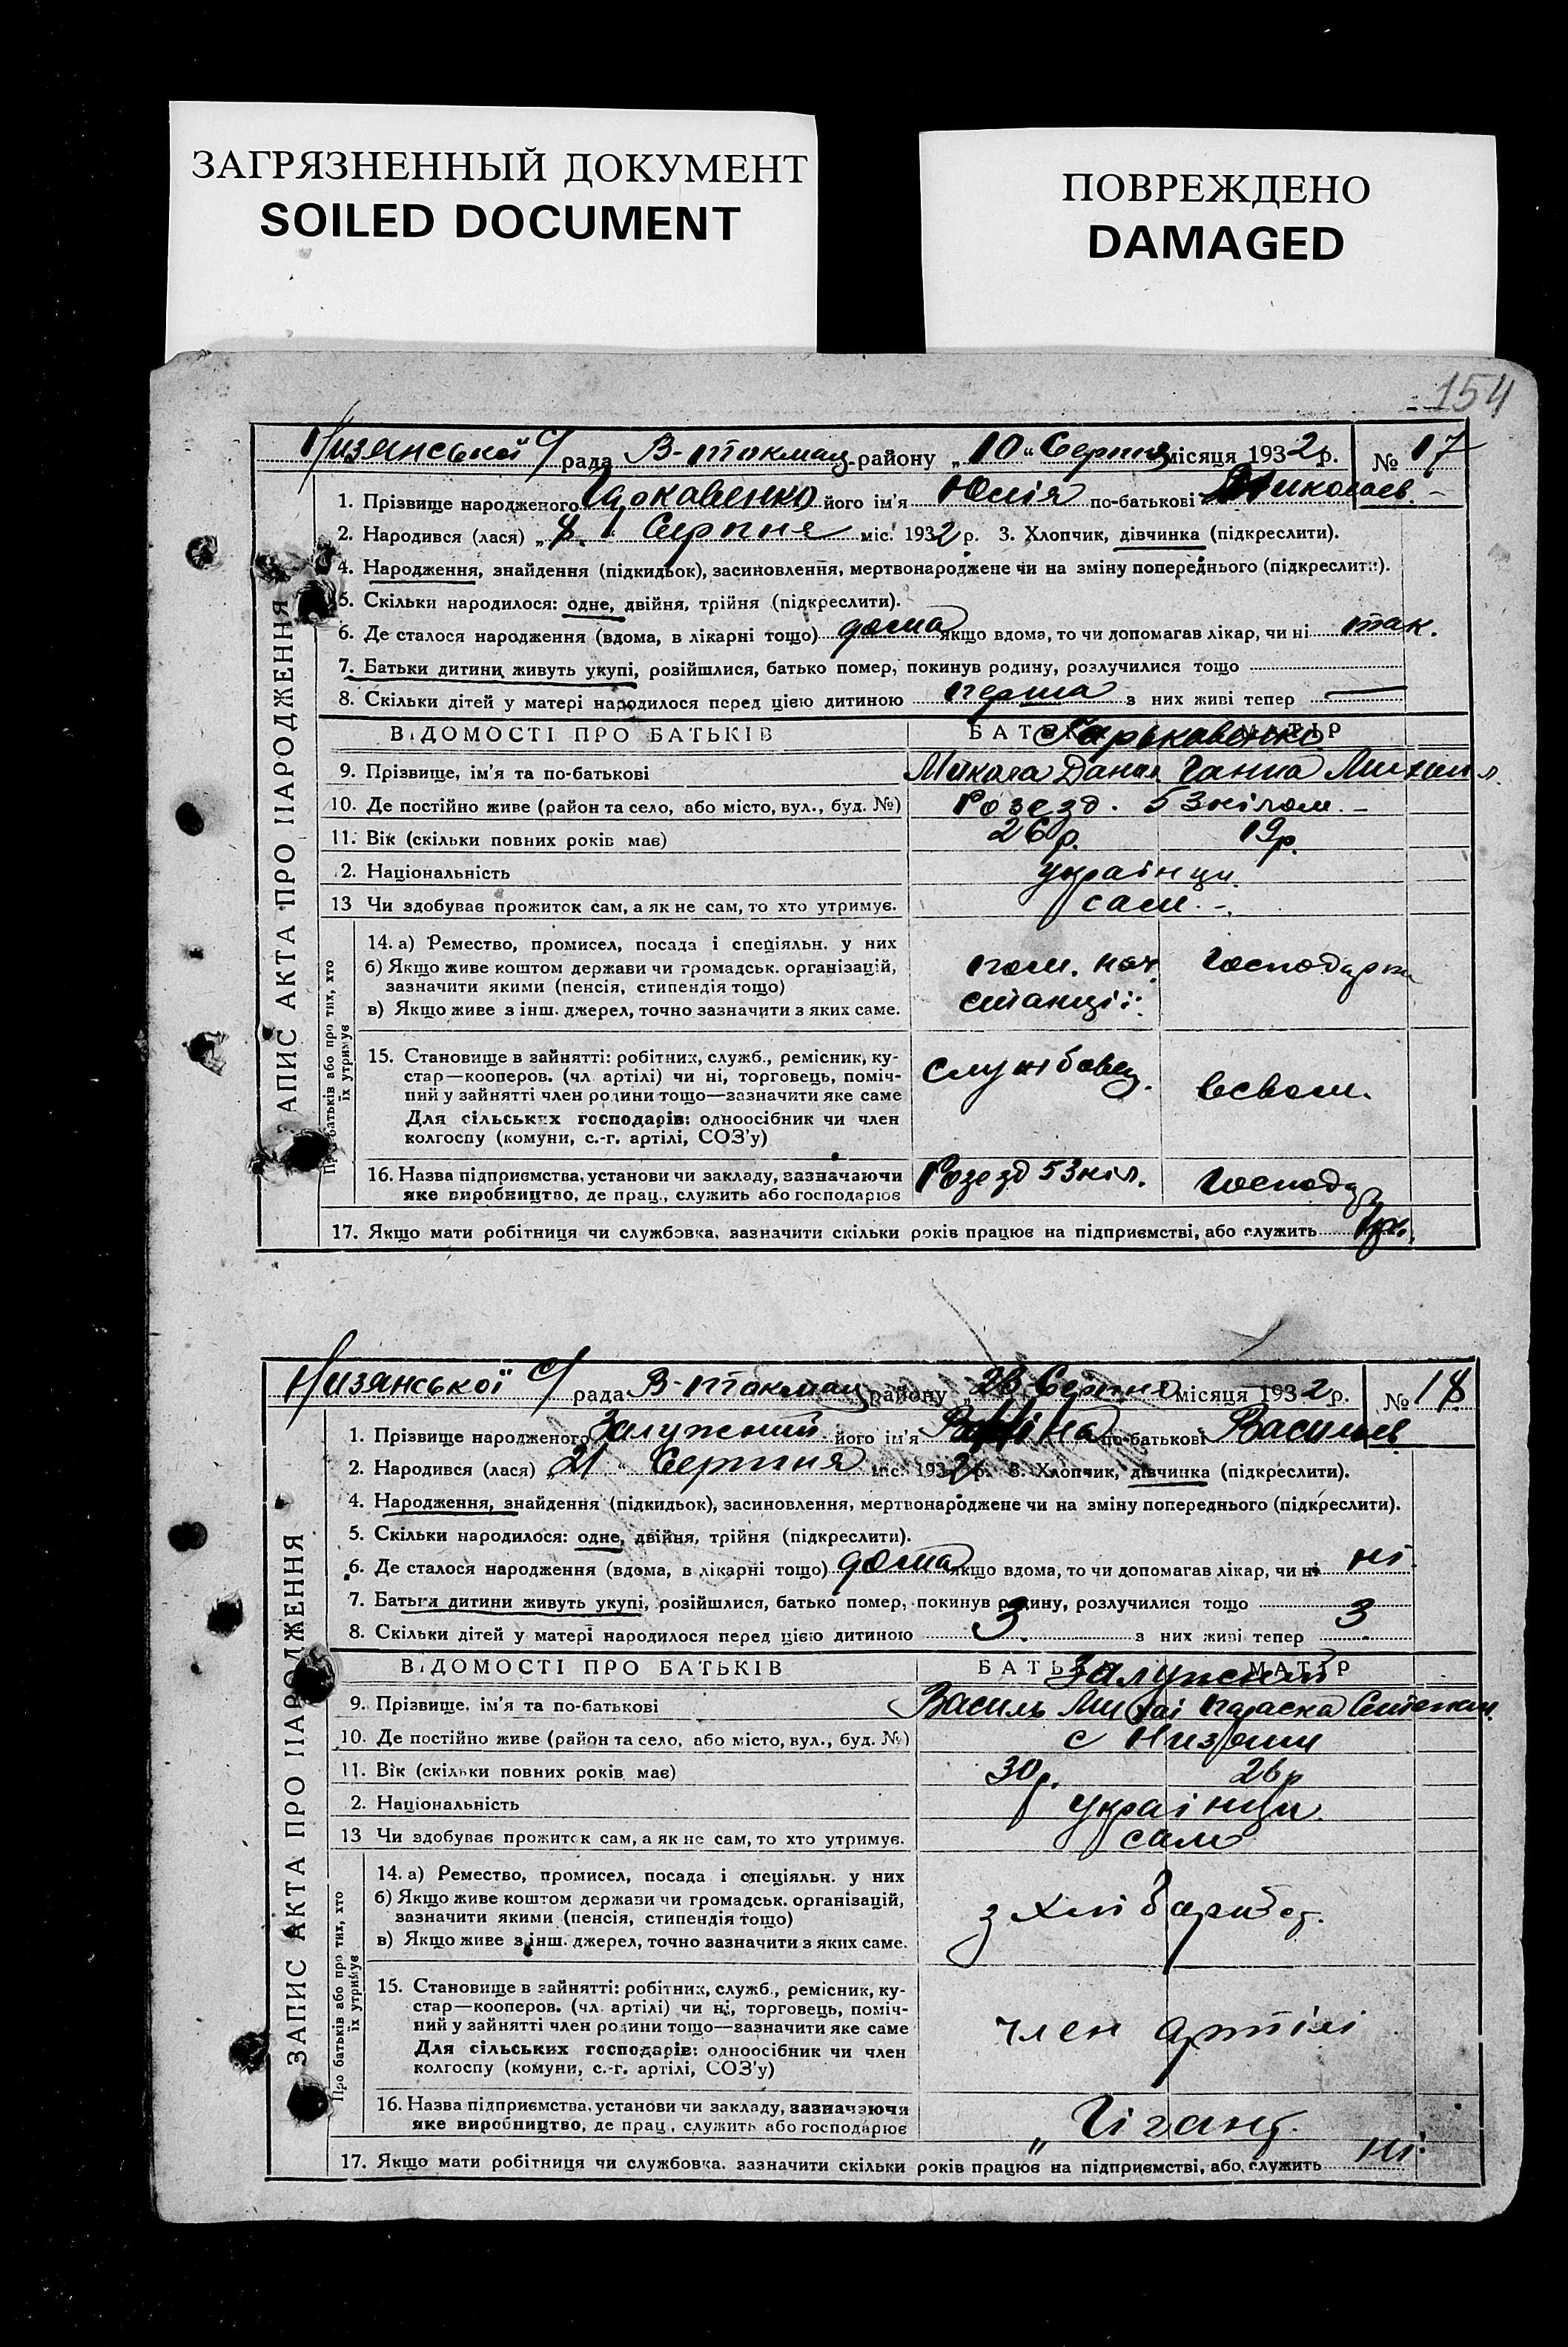 ЗАГРЯЗНЕННЫЙ ДОКУМЕНТ
SOILED DOCUMENT
ПОВРЕЖДЕНО
DAMAGED
154
Низянської с/ рада В-Токмац. району „10“ Серпня місяця 1932 р. № 17
1. Прізвище народженого його ім'я Юлія по-батькові Миколаєв. –
2. Народився (лася) „8. Серпня міс. 1932 р. 3. Хлопчик, дівчинка (підкреслити).
4. Народження, знайдення (підкидьок), засиновлення, мертвонароджене чи на зміну попереднього (підкреслити).
5. Скільки народилося: одне, двійня, трійня (підкреслити).
6. Де сталося народження (вдома, в лікарні тощо) дома якщо вдома, то чи допомагав лікар, чи ні так.
7. Батьки дитини живуть укупі, розійшлися, батько помер, покинув родину, розлучилися тощо
8. Скільки дітей у матері народилося перед цією дитиною перша з них живі тепер —
ВІДОМОСТІ ПРО БАТЬКІВ БАТЬКО МАТІР
Гарькавенко
9. Прізвище, ім'я та по-батькові Микола Данил. Ганна Михайл.
10. Де постійно живе (район та село, або місто, вул., буд. №) Розезд. 53 кілом. –
11. Вік (скільки повних років має) 26 р. 19 р.
2. Національність українци.
13 Чи здобував прожиток сам, а як не сам, то хто утримує. сам. –
14. а) Ремество, промисел, посада і спеціяльн. у них
б) Якщо живе коштом держави чи громадськ. організацій,
зазначити якими (пенсія, стипендія тощо)
в) Якщо живе з інш. джерел, точно зазначити з яких саме.
пом. нач. станції. Господарка
15. Становище в зайнятті: робітник, служб., ремісник, ку-
стар—кооперов. (чл. артілі) чи ні, торговець, поміч-
ний у зайнятті член родини тощо—зазначити яке саме
Для сільських господарів: одноосібник чи член
колгоспу (комуни, с.-г. артілі, СОЗ'у)
службовец.
16. Назва підприємства, установи чи закладу, зазначаючи Розезд 53 кіл.
яке виробництво, де прац., служить або господарює
17. Якщо мати робітниця чи службовка, зазначити скільки років працює на підприємстві, або служить
АПИС АКТА ПРО НАРОДЖЕННЯ
Про батьків або про тих, хто
їх утримує
Низянської с/ рада В-Токмац району „23 Серпня місяця 1932 р. № 18
1. Прізвище народженого Залужний його ім'я по-батькові Васильев
2. Народився (лася) 21 “ Серпня міс. 1932 р. 3. Хлопчик, дівчинка (підкреслити).
4. Народження, знайдення (підкидьок), засиновлення, мертвонароджене чи на зміну попереднього (підкреслити).
5. Скільки народилося: одне, двійня, трійня (підкреслити).
6. Де сталося народження (вдома, в лікарні тощо) дома якщо вдома, то чи допомагав лікар, чи ні ні.
7. Батьки дитини живуть укупі, розійшлися, батько помер, покинув родину, розлучилися тощо
8. Скільки дітей у матері народилося перед цією дитиною 3. з них живі тепер 3
ВІДОМОСТІ ПРО БАТЬКІВ БАТЬКО МАТІР
Залужний
9. Прізвище, ім'я та по-батькові Василь Параска Степан.
10. Де постійно живе (район та село, або місто, вул., буд. №) с Низяни
11. Вік (скільки повних років має) 30 р. 26 р
2. Національність українци.
13 Чи здобував прожиток сам, а як не сам, то хто утримує. сам
14. а) Ремество, промисел, посада і спеціяльн. у них
б) Якщо живе коштом держави чи громадськ. організацій,
зазначити якими (пенсія, стипендія тощо)
в) Якщо живе з інш. джерел, точно зазначити з яких саме.
15. Становище в зайнятті: робітник, служб., ремісник, ку-
стар—кооперов. (чл. артілі) чи ні, торговець, поміч-
ний у зайнятті член родини тощо—зазначити яке саме
Для сільських господарів: одноосібник чи член
колгоспу (комуни, с.-г. артілі, СОЗ'у)
член артілі
16. Назва підприємства, установи чи закладу, зазначаючи
яке виробництво, де прац., служить або господарює
„Гігант.
17. Якщо мати робітниця чи службовка, зазначити скільки років працює на підприємстві, або служить ні.
ЗАПИС АКТА ПРО НАРОДЖЕННЯ
Про батьків або про тих, хто
їх утримує